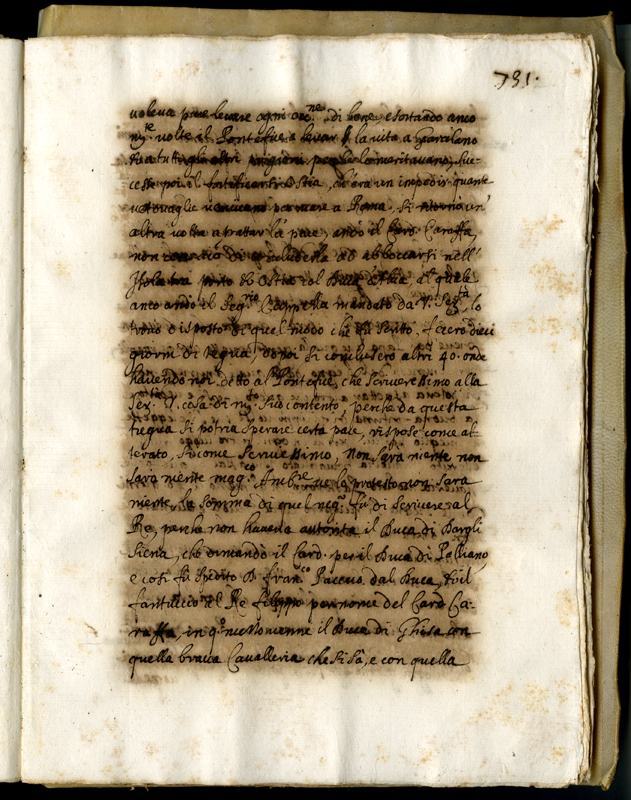 731.
voleva pace levare ogni occ.ne di bene, esortando anco
m.te volte il Pontefice a levar la vita a Garcilano
et a tutti gli altri prigioni perche lo meritavano, suc-
cesse poi il fortificarsi Ostia, ch'era un impedir quante
vettovaglie venivano per mare a Roma. Si ritornò un'
altra volta a tratar la pace, andò il Card. Caraffa,
non di abboccarsi nell'
Isola presso Ostia col Duca d'Alva, al quale
anco andò il Seg.rio mandato da V. Ser.tà, lo
trovò disposto di quel modo che fù scrito. Fecero dieci
giorni di tregua, dopoi si conclusero altri 40. onde
havendo noi detto al Pontefice, che scriveressimo alla
Ser.tà V. cosa di m.to suo contento, perche da questa
tregua si potria sperare certa pace, rispose come al-
terato, sicome scrivessimo, Non sarà niente non
sarà niente mag.co Amb.re ve lo protesto non sara
niente, la somma di quel neg.o fù di scrivere al
Re, perche non haveva autorita il Duca di dargli
Siena, che dimandò il Card. per il Duca di Palliano
e così fù spedito D. Fran.co Paceco dal Duca, et il
fantuccio al Re Filippo per nome del Card. Ca-
raffa, in q.o mezzo venne il Duca di Ghisa con
quella brava Cavalleria che si sà, e con quella